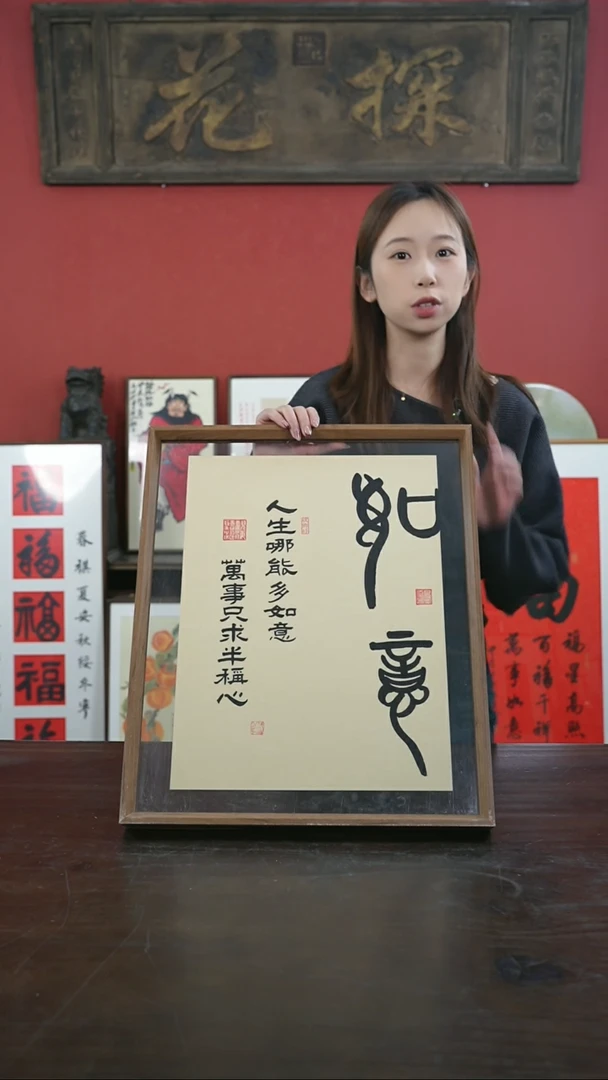 探花
如意
人生哪能多如意
萬事只求半稱心
福
福
福
福
春祺夏安秋綏冬寧
福星高照
百福千祥
萬事如意